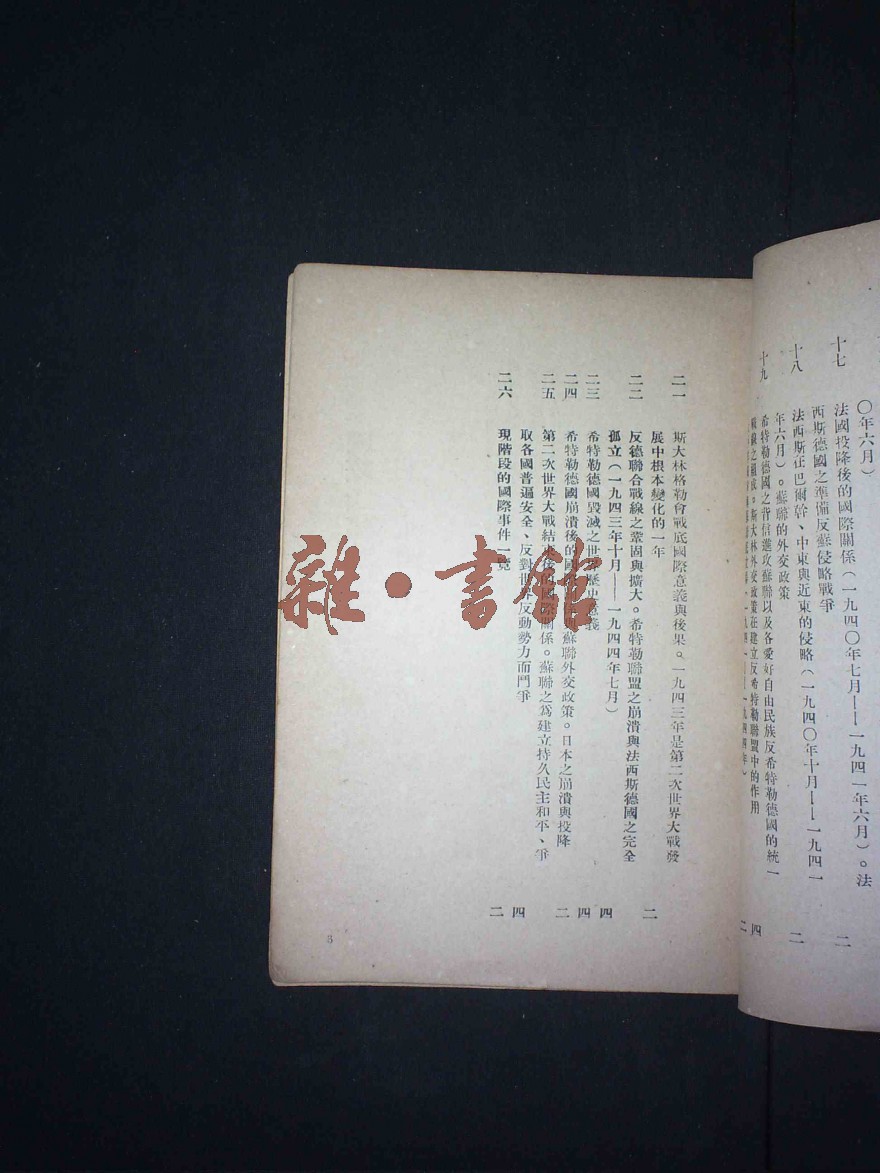 〇年六月)
十七 法國投降後的國際關係(一九四〇年七月——一九四一年六月)。法 二
西斯德國之準備反蘇侵略戰爭
十八 法西斯在巴爾幹、中東與近東的侵略(一九四〇年十月——一九四一 二
年六月)。蘇聯的外交政策
十九 希特勒德國之背信進攻蘇聯以及各愛好自由民族反希特勒德國的統一 四
戰線之組成。斯大林外交政策在建立反希特勒聯盟中的作用
二一 斯大林格勒會戰底國際意義與後果。一九四三年是第二次世界大戰發 二
展中根本變化的一年
二二 反德聯合戰線之鞏固與擴大。希特勒聯盟之崩潰與法西斯德國之完全
孤立(一九四三年十月——一九四四年七月) 四
二三 希特勒德國毀滅之世界歷史意義 四
二四 希特勒德國崩潰後的國 蘇聯外交政策。日本之崩潰與投降 二
二五 第二次世界大戰結束後的國際關係。蘇聯之為建立持久民主和平、爭
取各國普遍安全、反對世界反動勢力而鬥爭 四
二六 現階段的國際事件一覽 二
3
雜·書館